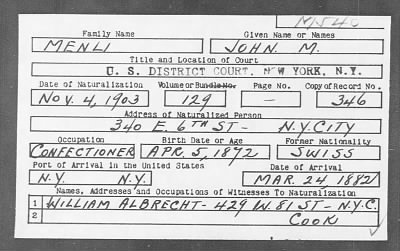 M540
Family Name Given Name or Names
MENLI JOHN. M.
Title and Location of Court
U. S. DISTRICT COURT, NEW YORK, N.Y.
Date of Naturalization Volume or Bundle No. Page No. Copy of Record No.
NOV. 4, 1903 129 — 346
Address of Naturalized Person
340 E. 6TH ST - N.Y. CITY
Occupation Birth Date or Age Former Nationality
CONFECTIONER APR. 5, 1872 SWISS
Port of Arrival in the United States Date of Arrival
N.Y. N.Y. MAR. 24 1882
Names, Addresses and Occupations of Witnesses To Naturalization
1 WILLIAM ALBRECHT - 429 W. 81 ST - N.Y.C.
2 COOK